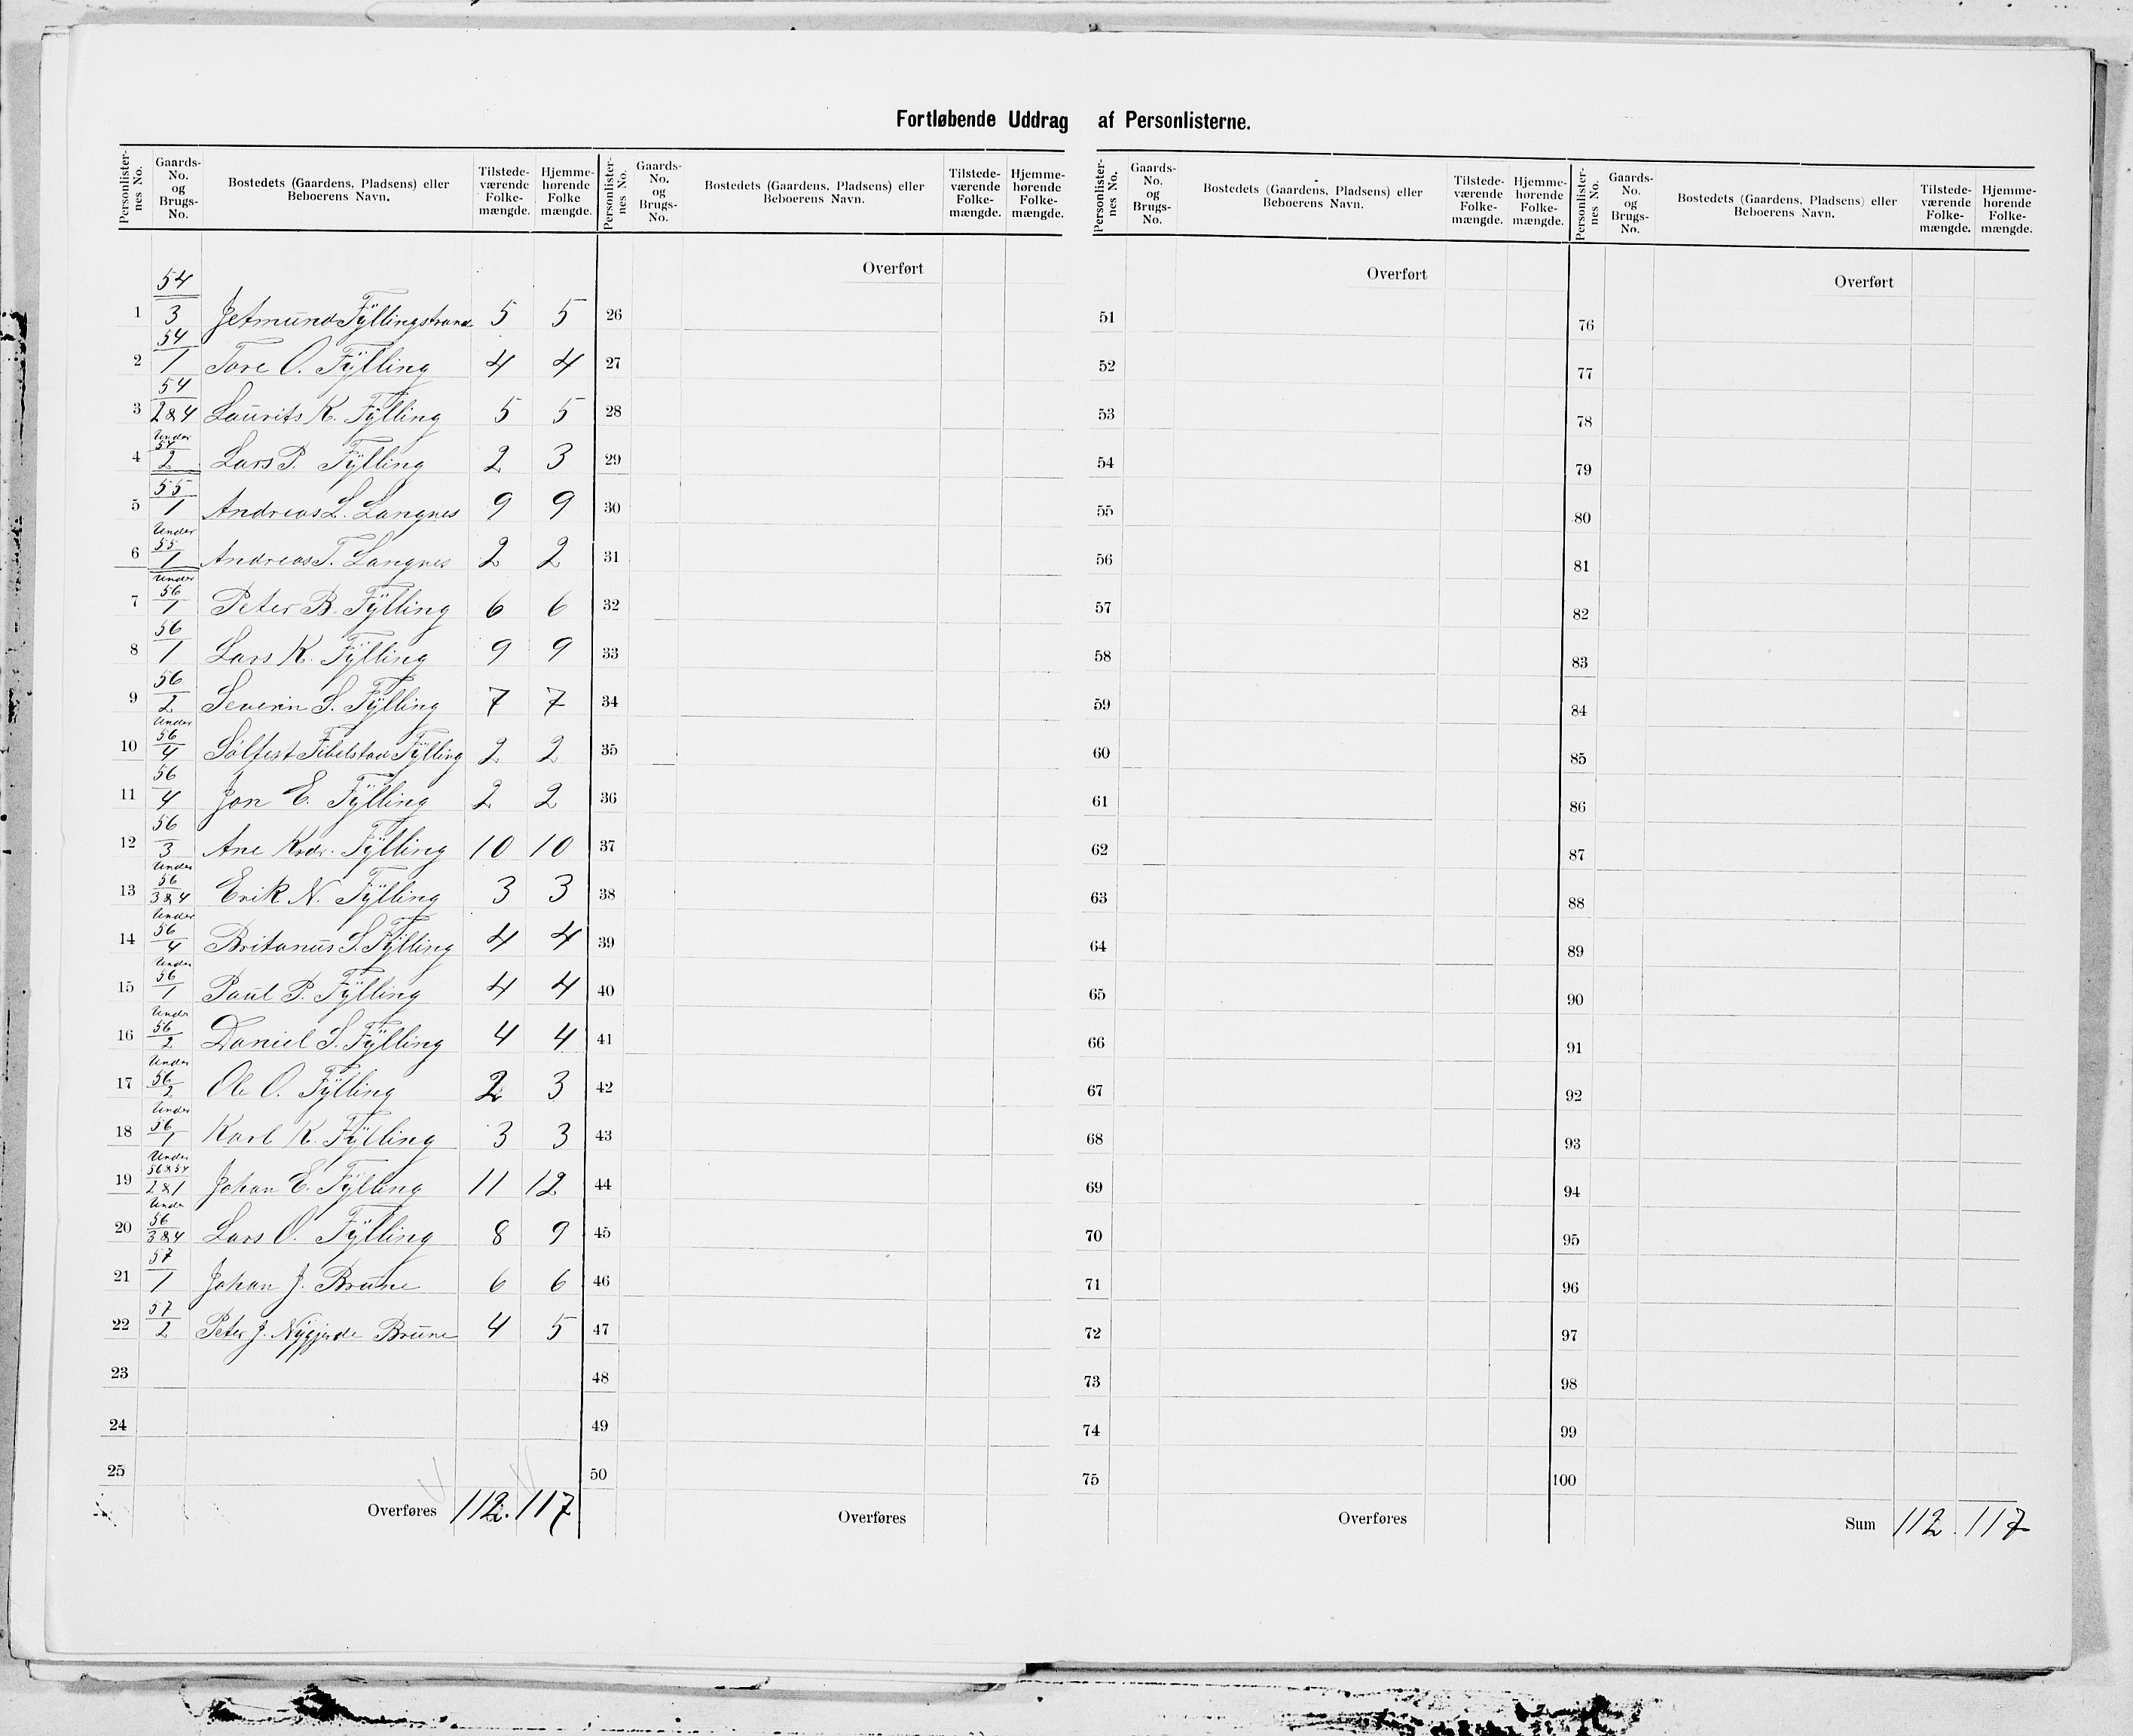 Fortløbende Uddrag af Personlisterne.
Personlister-nes No. Gaards-No. og Brugs-No. Bostedets (Gaardens, Pladsens) eller Beboerens Navn. Tilstede-værende Folke-mængde. Hjemme-hørende Folke mængde. Personlister-nes No. Gaards-No. og Brugs-No. Bostedets (Gaardens, Pladsens) eller Beboerens Navn. Tilstede-værende Folke-mængde. Hjemme-hørende Folke-mængde. Personlister-nes No. Gaards-No. og Brugs-No. Bostedets (Gaardens, Pladsens) eller Beboerens Navn. Tilstede-værende Folke-mængde. Hjemme-hørende Folke-mængde. Personlister-nes No. Gaards-No. og Brugs-No. Bostedets (Gaardens, Pladsens) eller Beboerens Navn. Tilstede-værende Folke-mængde. Hjemme-hørende Folke-mængde.
Overført Overført Overført
1 54/3 Jetmund Fyllingstrand 5 5 26 51 76
2 54/1 Tore O. Fylling 4 4 27 52 77
3 54/2&4 Laurits K. Fylling 5 5 28 53 78
4 Under 54/2 Lars P. Fylling 2 3 29 54 79
5 55/1 Andreas L. Langnes 9 9 30 55 80
6 Under 55/1 Andreas T. Langnes 2 2 31 56 81
7 Under 56/1 Peter B. Fylling 6 6 32 57 82
8 56/1 Lars K. Fylling 9 9 33 58 83
9 56/2 Severin S. Fylling 7 7 34 59 84
10 Under 56/4 Sölfest Fibelstad Fylling 2 2 35 60 85
11 56/4 Jon E. Fylling 2 2 36 61 86
12 56/3 Ane Fylling 10 10 37 62 87
13 Under 56/3&4 Erik N. Fylling 3 3 38 63 88
14 Under 56/4 Britanus S. Fylling 4 4 39 64 89
15 Under 56/1 Paul P. Fylling 4 4 40 65 90
16 Under 56/2 Daniel S. Fylling 4 4 41 66 91
17 Under 56/2 Ole O. Fylling 2 3 42 67 92
18 Under 56/1 Karl K. Fylling 3 3 43 68 93
19 Under 56&54/2&1 Johan E. Fylling 11 12 44 69 94
20 Under 56/3&4 Lars O. Fylling 8 9 45 70 95
21 57/1 Johan J. Brune 6 6 46 71 96
22 57/2 Peter J. Nygjerde Brune 4 5 47 72 97
23 48 73 98
24 49 74 99
25 50 75 100
Overføres 112. 117 Overføres Overføres Sum 112. 117